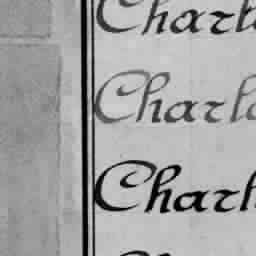 Charl
Charl
Charl